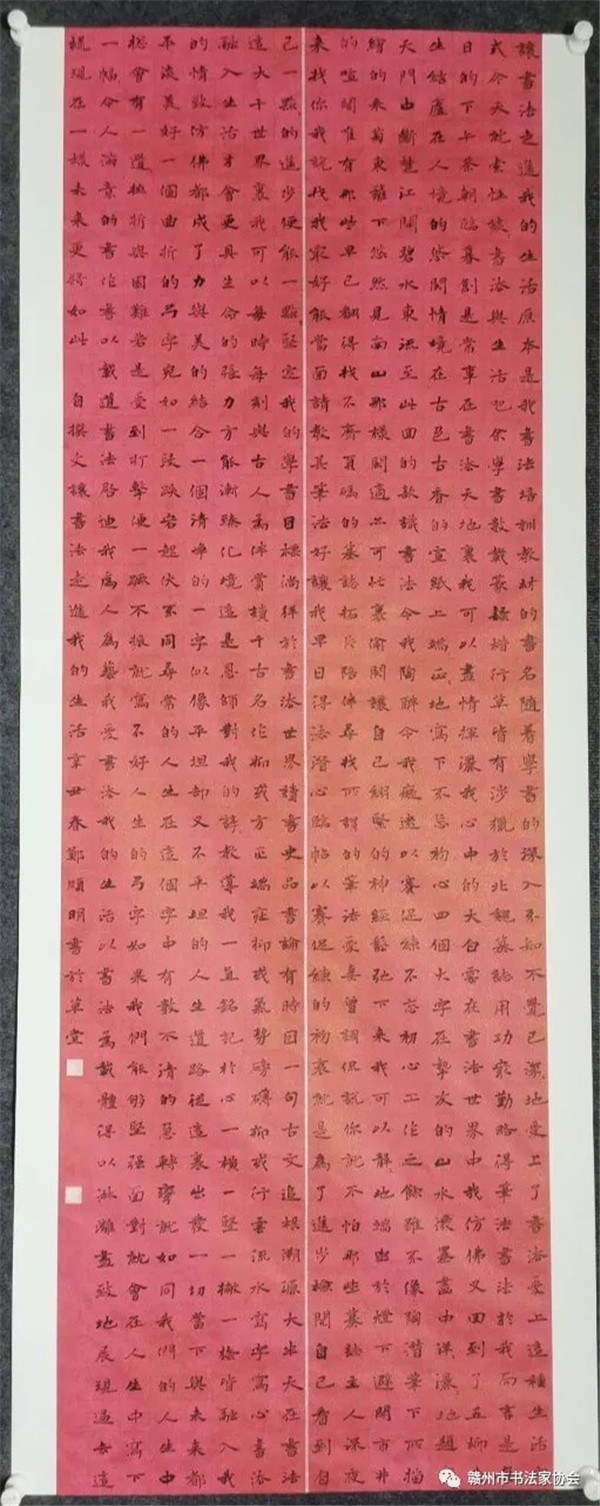 讓書法走進我的生活原本是我書法培訓教材的書名随着學書的深入不知不覺已深地愛上了書法愛上這種生活方
式今天就索性談書法與生活吧余學書數載篆隸楷行草皆有涉獵於北魏墓誌用功最勤略得筆法書法於我而言是每
日的下午茶朝臨暮創是常事在書法天地裏我可以盡情揮灑我心中的大白雲在書法世界中我仿佛又回到了五柳先
生結廬在人境的悠閒情境在古色古香的宣紙上端正地寫下不忘初心四個大字在摯友的山水濃墨畫中洋灑地題上
天門中斷楚江開碧水東流至此回的款識書法令我陶醉令我癡迷以賽促練不忘初心工作之餘雖不像陶潛筆下所描
繪的采菊東籬下悠然見南山那樣閒適亦可忙裏偷閒讓自己綳緊的神經鬆弛下來我可以靜地端坐於燈下避開市井
的喧鬧唯有那些早已翻得找不齊頁碼的墓誌拓片陪伴尋找所謂的筆法愛妻曾調侃說你就不怕那些墓誌主人深夜
來找你我說找我最好能當面請教其筆法好讓我早日得法潛心臨帖以賽促練的初衷就是為了進步檢閱自己看到自
己一點的進步便能一點堅定我的學書目標徜徉於書法世界讀書史品書論有時因一句古文追根溯源大半天在書法
這大千世界裏我可以每時每刻與古人為伴賞積千古名作抑或方正端莊抑或氣勢磅礴抑或行雲流水寫字寫心書法
融入生活才會更具生命的張力方能漸臻化境這是恩師對我的諄教導我一直銘記於心一橫一豎一撇一捺皆融入我
的情致仿佛都成了力與美的結合一個清的一字似像平坦却又不平坦的人生道路從這裏出發一切當下與未來都
平淡美好一個曲折的弓字宛如一段跌宕起伏不同尋常的人生在這個字中有數不清的急轉彎就如同我們的人生中
總會有一道挫折與困難若是受到打擊便一蹶不振就寫不好人生的弓字如果我們能够堅强面對就會在人生中寫下
一幅令人滿意的書作書以載道書法啓迪我為人為藝我愛書法我的生活以書法為載體得以淋漓盡致地展現過去這
樣現在一樣未來更將如此 自撰文讓書法走進我的生活辛丑春鄭順明書於草堂
赣州市书法家协会